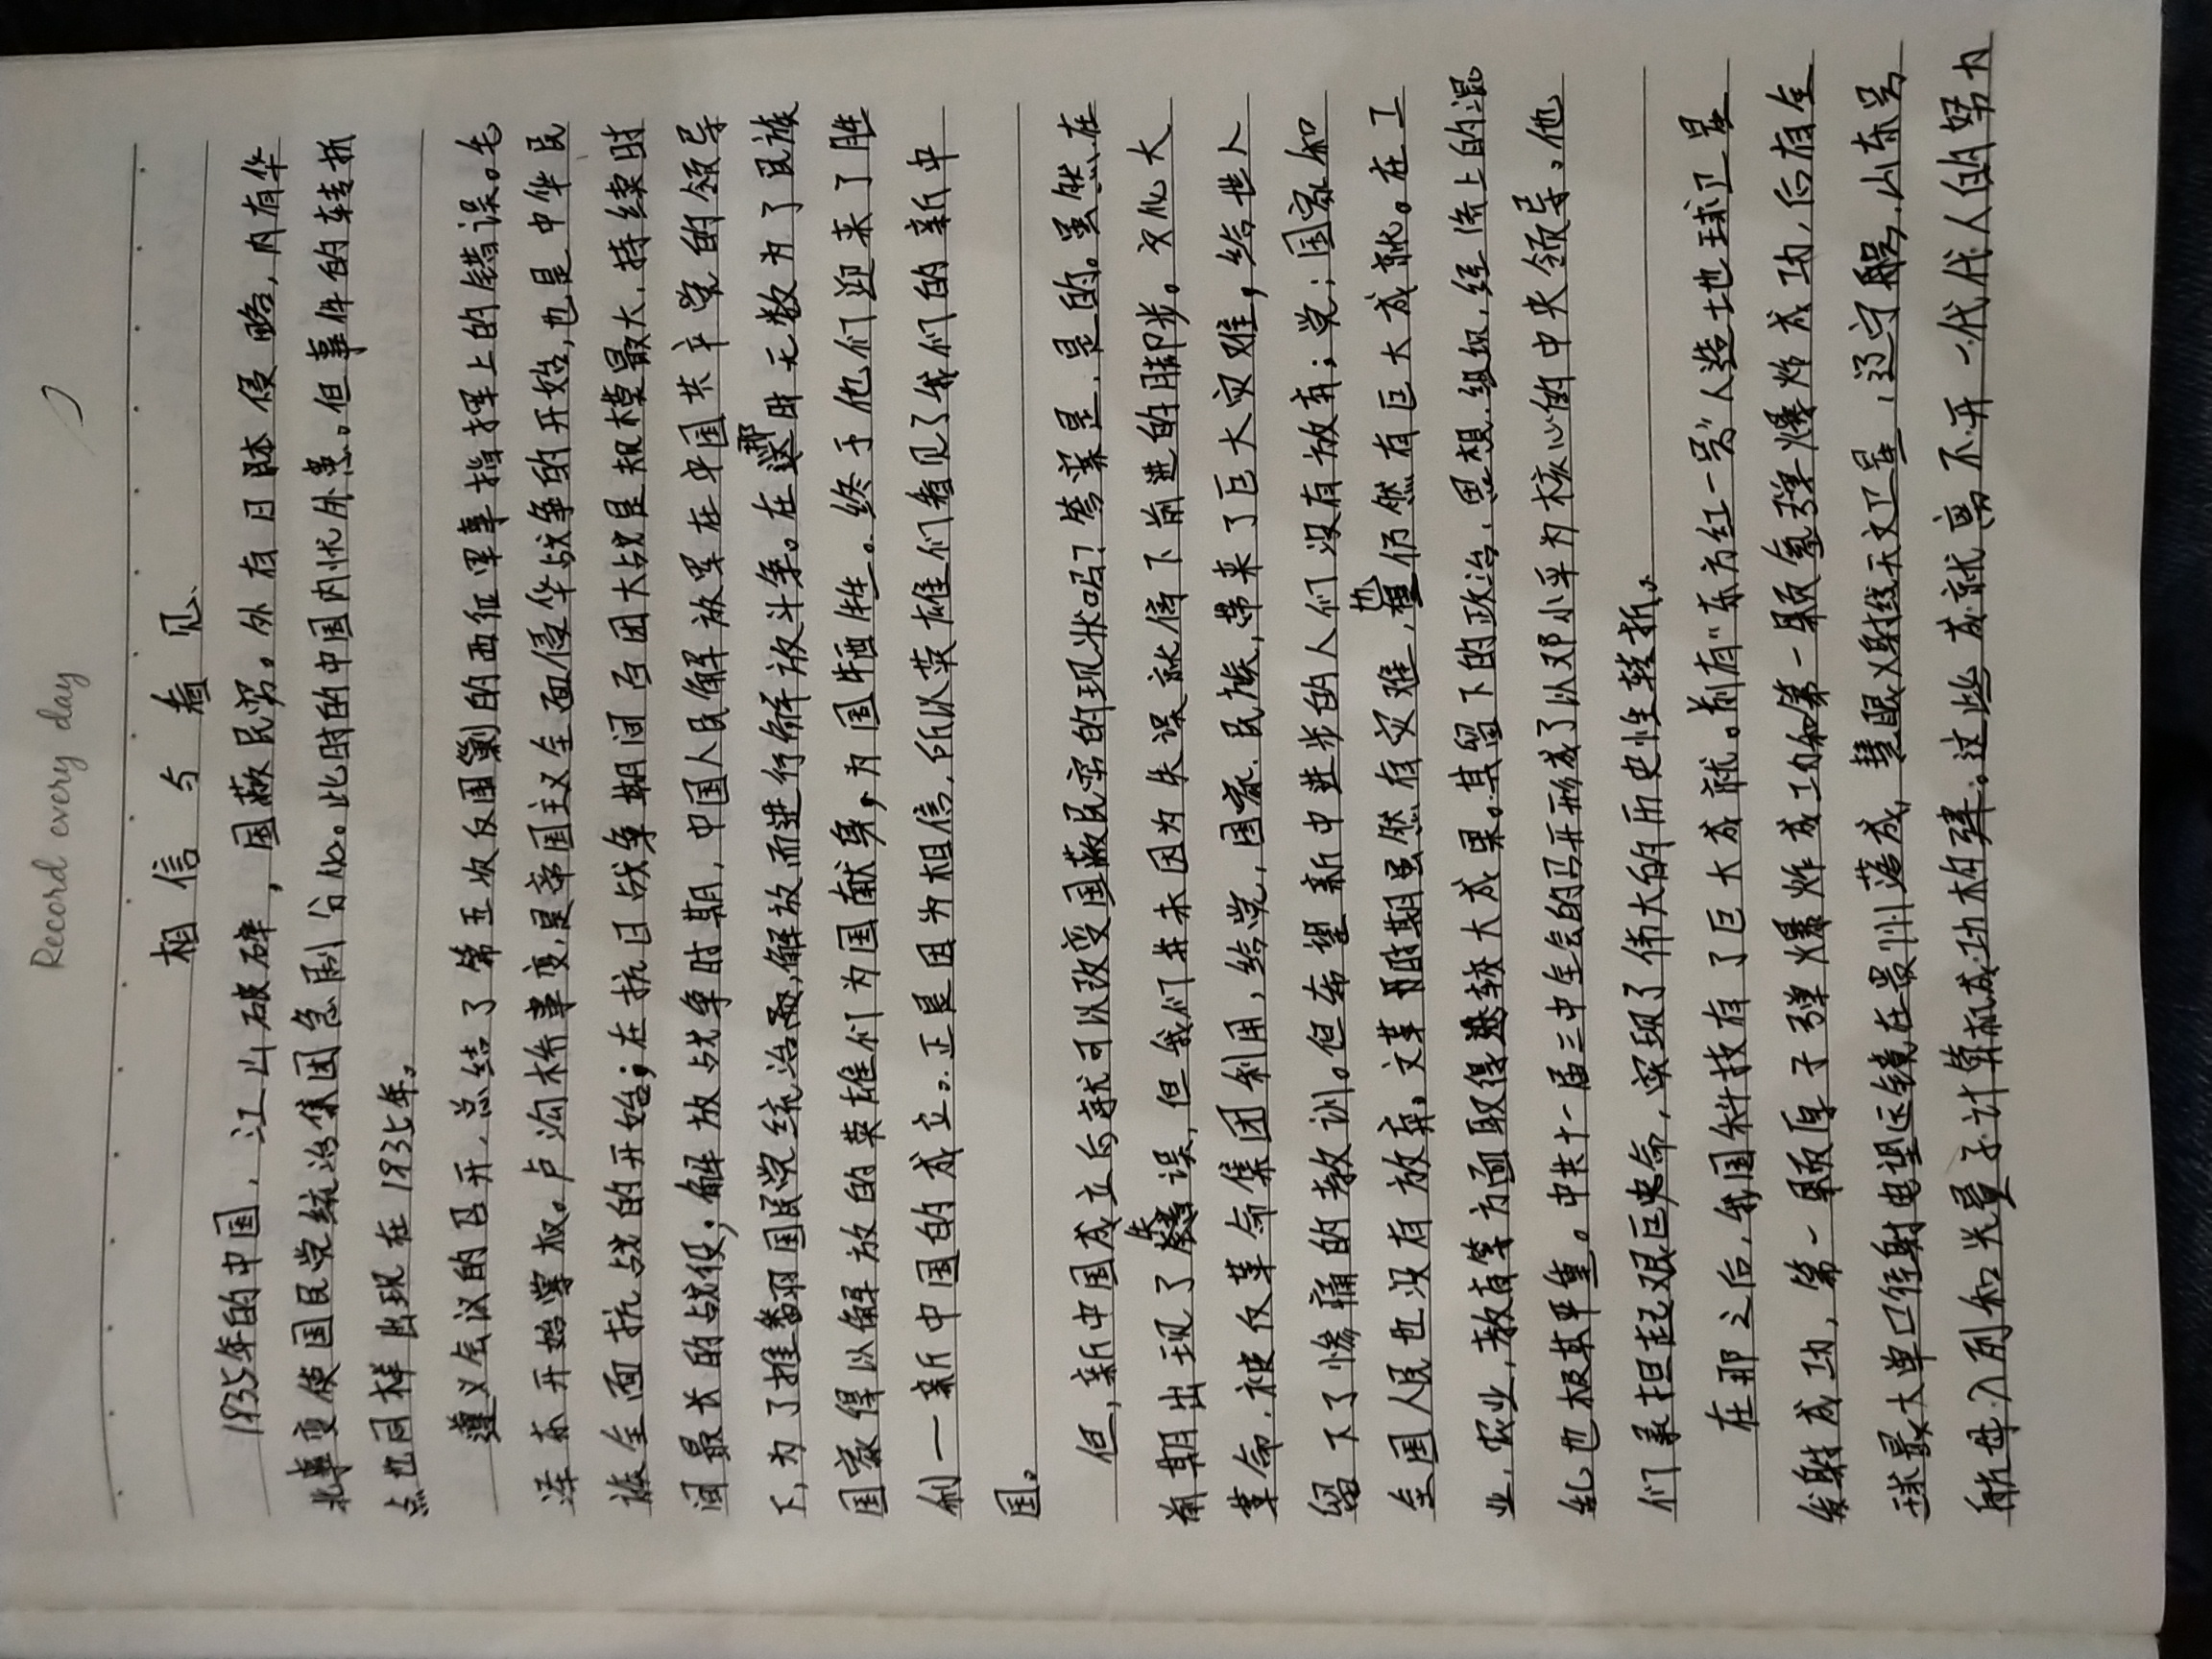 Record every day
相信与看见
1935年的中国，江山破碎，国蔽民穷。外有日本侵略，内有华
北事变使国民党统治集团急剧分化。此时的中国内忧外患。但事件的转折
点也同样出现在1935年。
遵义会议的召开，总结了第五次反围剿的西征军事指挥上的错误。毛
泽东开始掌权。卢沟桥事变，是帝国主义全面侵华战争的开始，也是中华民
族全面抗战的开始；在抗日战争期间百团大战是规模最大、持续时
间最长的战役；解放战争时期，中国人民解放军在中国共产党的领导
下，为了推翻国民党统治，解放而进行解放斗争。在那时无数为了民族
国家得以解放的英雄们为国献身，为国牺牲。终于他们迎来了胜
利一新中国的成立。正是因为相信，所以英雄们看见了我们的新中
国。
但，新中国成立后就可以改变国蔽民穷的现状吗？答案是，是的。虽然在
前期出现了失误，但我们并未因为失误就停下前进的脚步。文化大
革命，被反革命集团利用，给党，国家、民族，带来了巨大灾难，给世人
留下了惨痛的教训。但希望新中进步的人们没有放弃；党；国家和
全国人民也没有放弃。文革时期虽然有灾难，也仍然有巨大成就。在工
业，农业，教育等方面取得较大成果。其留下的政治、思想、组织、经济上的混
乱也极其严重。中共十一届三中全会的召开形成了以邓小平为核心的中央领导。他
们承担起艰巨使命，实现了伟大的历史性转折。
在那之后，我国科技有了巨大成就。前有“东方红一号”人造地球卫星
发射成功，第一颗原子弹爆炸成功和第一颗氢弹爆炸成功，后有全
球最大单口径射电望远镜在贵州落成，慧眼X射线天文卫星，辽宁舰，山东号
航母入列和光量子计算机成功构建。这些成就离不开一代代人的努力